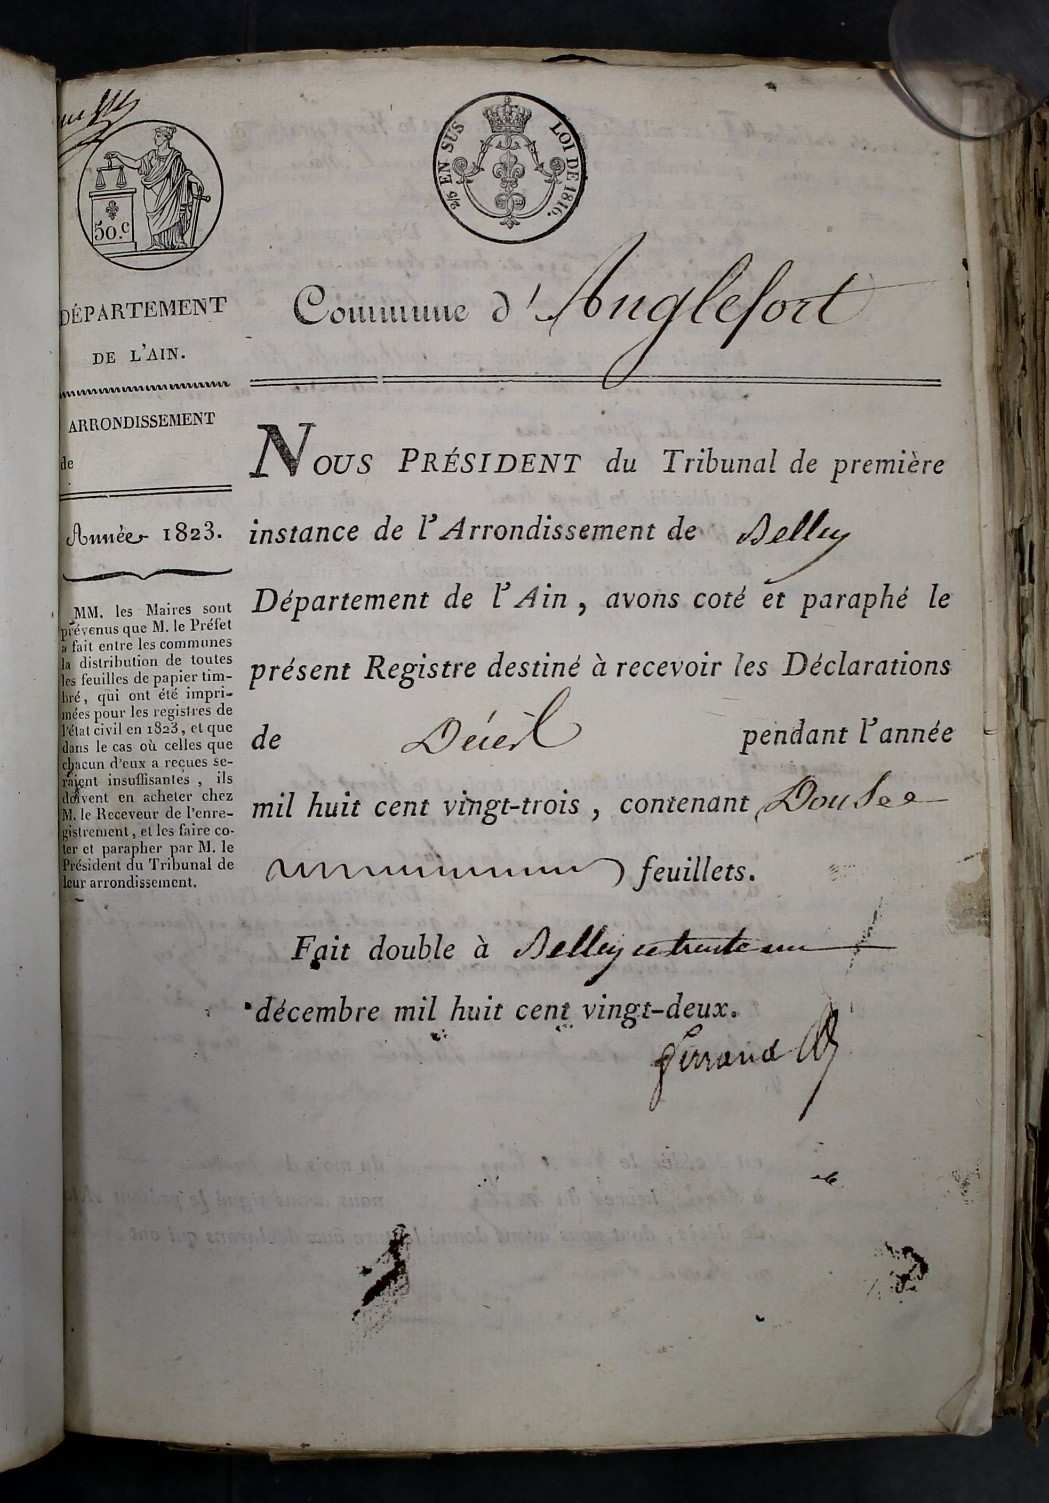 50.c
2/5 EN SUS
LOI DE 1816.
DÉPARTEMENT
DE L'AIN.
ARRONDISSEMENT
de
Année 1823.
MM. les Maires sont
prévenus que M. le Préfet
a fait entre les communes
la distribution de toutes
les feuilles de papier tim-
bré, qui ont été impri-
mées pour les registres de
l'état civil en 1823, et que
dans le cas où celles que
chacun d'eux a reçues se-
raient insuffisantes, ils
doivent en acheter chez
M. le Receveur de l'enre-
gistrement, et les faire co-
ter et parapher par M. le
Président du Tribunal de
leur arrondissement.
Commune d'Anglefort
NOUS PRÉSIDENT du Tribunal de première
instance de l'Arrondissement de Belley
Département de l'Ain, avons coté et paraphé le
présent Registre destiné à recevoir les Déclarations
de Décès pendant l'année
mil huit cent vingt-trois, contenant Douse
feuillets.
Fait double à Belley ce trente un
décembre mil huit cent vingt-deux.